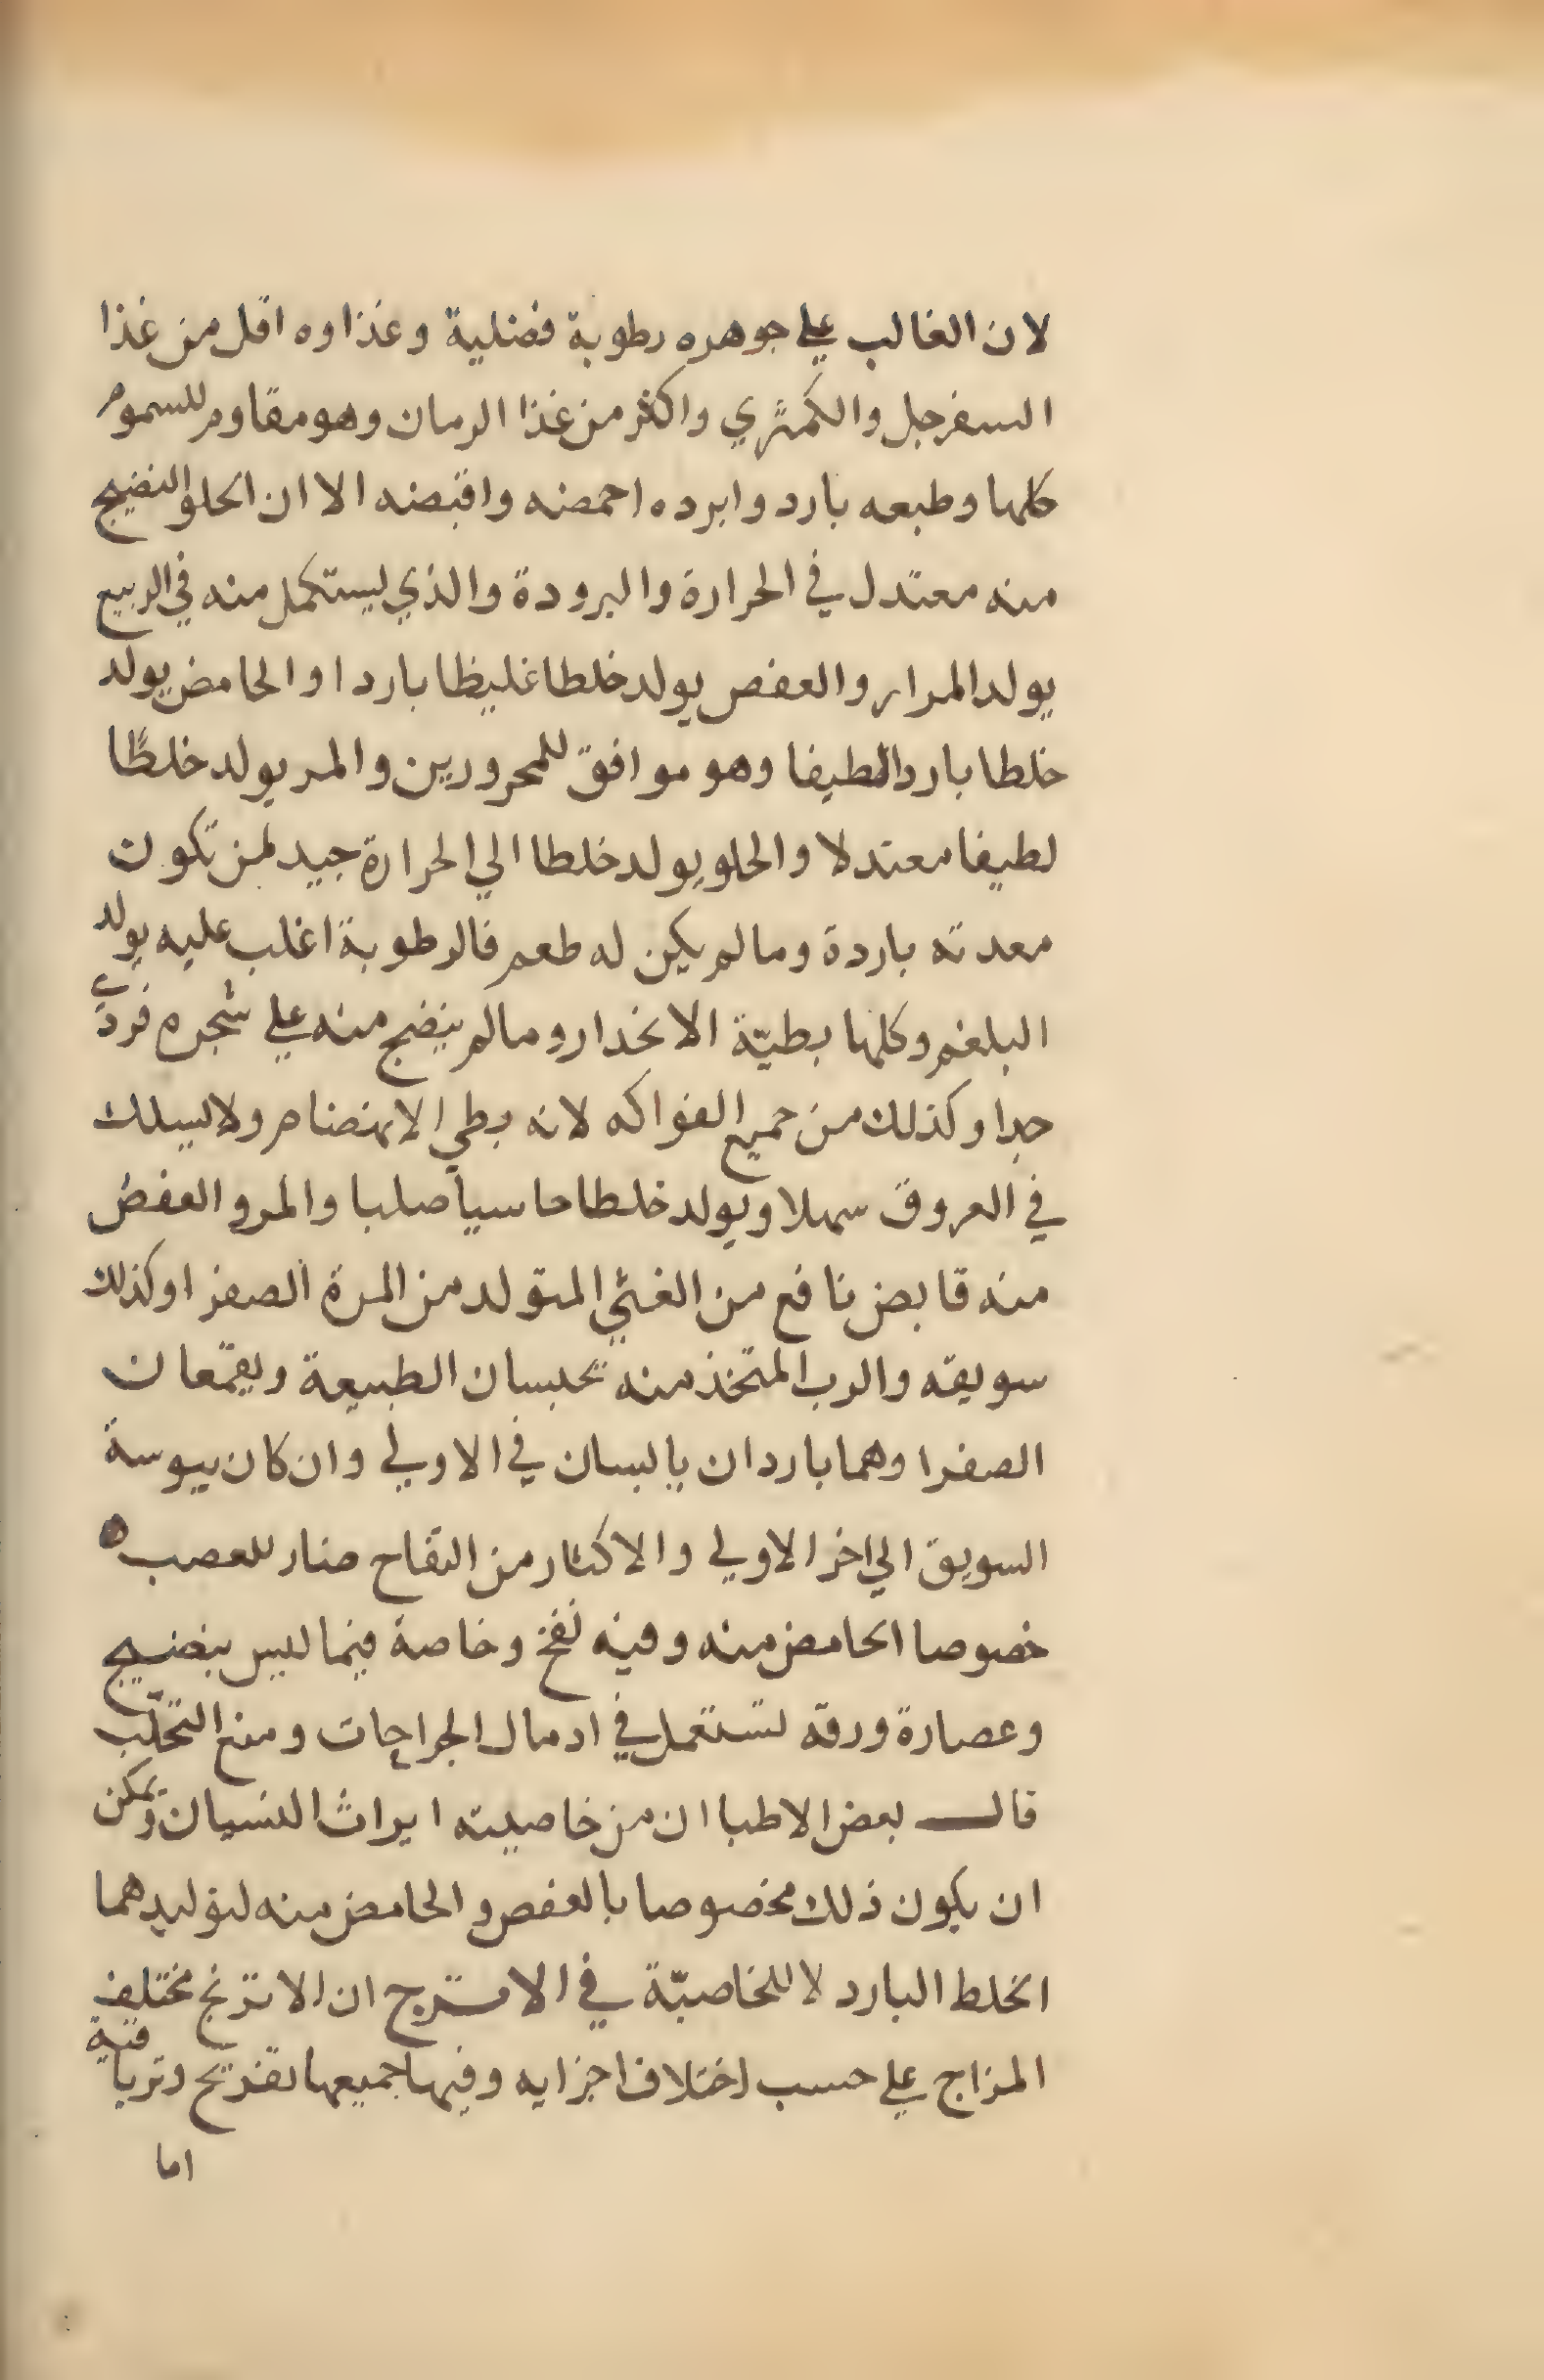 لان الغالب علي جوهره رطوبة فضلية وغذاوه اقل من غذا
السفرجل والكمثري واكثر من غذا الرمان وهو مقاوم للسموم
كلها وطبعه بارد وابرده احمضه واقبضه الا ان الحلو النضيج
منه معتدل في الحرارة والبرودة والذي يستكمل منه في الربيع
يولد المرار والعفص يولد خلطا غليظا باردا والحامض يولد
خلطا باردا لطيفا وهو موافق للمحرورين والمر يولد خلطًا
لطيفا معتدلا والحلو يولد خلطا الي الحرارة جيد لمن تكون
معدته باردة وما لم يكن له طعم فالرطوبة اغلب عليه يولد
البلغم وكلها بطيّة الانحدار وما لم ينضج منه علي شجره فردي
جدا وكذلك من جميع الفواكه لانه بطي الانهضام ولا يسلك
في العروق سهلا ويولد خلطا حاسيا صلبا والمر والعفص
منه قابض نافع من الغثي المتولد من المرة الصفرا وكذلك
سويقه والرب المتخذ منه يحبسان الطبيعة ويقمعان
الصفرا وهما باردان يابسان في الاولي وان كان يبوسة
السويق الي اخر الاولي والاكثار من التفاح ضار للعصب ه
خصوصا الحامض منه وفيه نفخ وخاصة فيما ليس بنضيج
وعصارة ورقه تستعمل في ادمال الجراحات ومنع التحلّب
قال بعض الاطبا ان من خاصيته ايراث النسيان ويمكن
ان يكون ذلك مخصوصا بالعفص والحامض منه لتوليدهما
الخلط البارد لا للخاصيّة في الاترج ان الاترنج مختلف
المزاج علي حسب اختلاف اجزايه وفيها جميعها تفريح وترياقية
اما